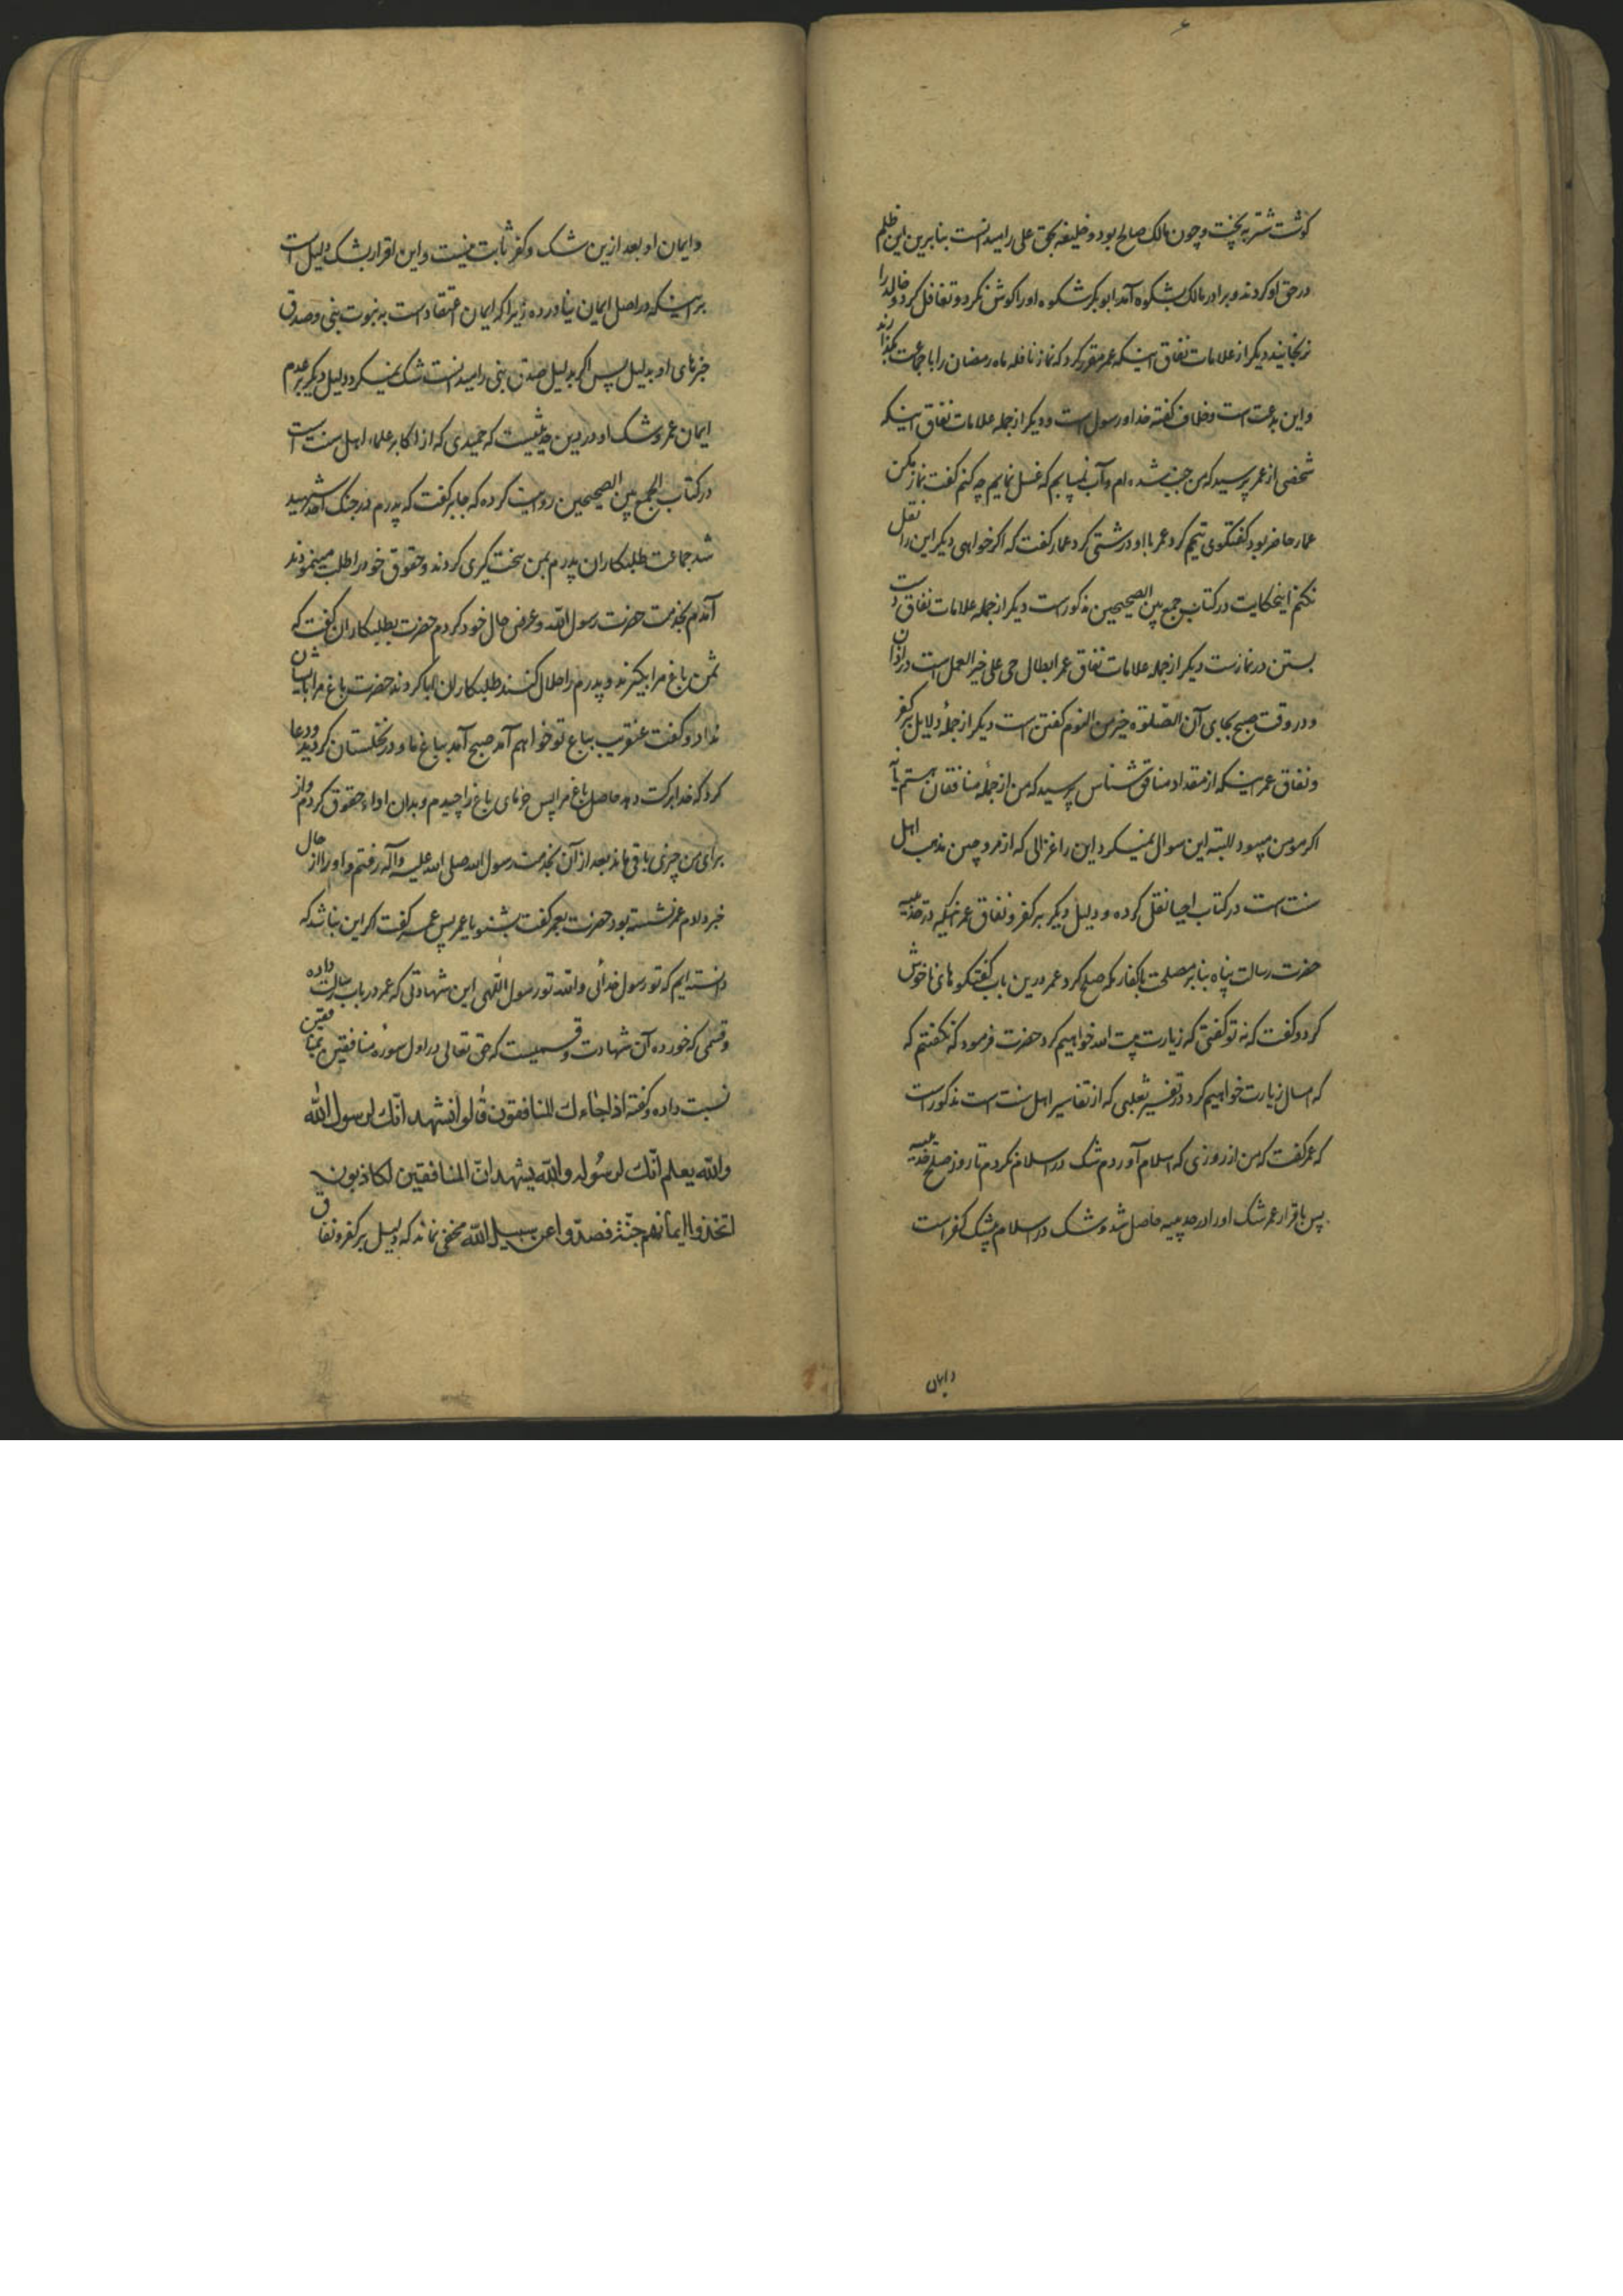 گوشت شتر به پخت و چون مالک صالح بود و خلیفه بحق علی را میدانست بنابرین این ظلم
در حق او کردند و برادر مالک بشکوه آمد ابوبکر شکوه او را گوش نکرد و تغافل کرد و خالد را
نرنجانید دیگر از علامات نفاق اینکه عمر مقرر کرد که نماز نافله ماه رمضان را با جماعت بگذارند
و این بدعت است و خلاف گفته خدا و رسول است و دیگر از جمله علامات نفاق اینکه
شخصی از عمر پرسید که من جنب شده ام و آب نمییابم که غسل نمایم چه کنم گفت نماز مکن
عمار حاضر بود گفتگوی تیمم کرد عمر با او درشتی کرد عمار گفت که اگر خواهی دیگر این را نقل
نکنم اینحکایت در کتاب جمع بین الصحیحین مذکور است دیگر از جمله علامات نفاق دست
بستن در نماز است دیگر از جمله علامات نفاق عمر ابطال حی علی خیر العمل است در اذان
و در وقت صبح بجای آن الصلوة خیر من النوم گفتن است دیگر از جملهٔ دلایل بر کفر
و نفاق عمر اینکه از مقداد منافق شناس پرسید که من از جملهٔ منافقان هستم یا نه
اگر مومن میبود البته این سوال نمیکرد این را غزالی که از مروجین مذهب اهل
سنت است در کتاب احیا نقل کرده و دلیل دیگر بر کفر و نفاق عمر اینکه در حدیبیه
حضرت رسالت پناه بنابر مصلحت با کفار مکه صلح کرد عمر درین باب گفتگو های ناخوش
کرد و گفت که نه تو گفتی که زیارت بیت الله خواهیم کرد حضرت فرمود که نگفتم که
که امسال زیارت خواهیم کرد و در تفسیر ثعلبی که از تفاسیر اهل سنت است مذکور است
که عمر گفت که من از روزی که اسلام آوردم شک در اسلام نکردم تا روز صلح حدیبیه
پس باقرار عمر شک او را در حدیبیه حاصل شد و شک در اسلام بیشک کفر است
و ایمان
و ایمان او بعد ازین شک و کفر ثابت نیست و این اقرار بشک دلیل است
بر اینکه در اصل ایمان نیاورده زیرا که ایمان اعتقاد است به نبوت نبی و صدق
خبرهای او بدلیل پس اگر بدلیل صدق نبی را میدانست شک نمیکرد و دلیل دیگر بر عدم
ایمان عمر و شک او در دین حدیثیست که حمیدی که از اکابر علماء اهل سنت است
در کتاب الجمع بین الصحیحین روایت کرده که جابر گفت که پدرم در جنگ احد شهید
شد جماعت طلبکاران پدرم بمن سخت گیری کردند و حقوق خود را طلب مینمودند
آمدم بخدمت حضرت رسول الله و عرض حال خود کردم حضرت بطلبکاران گفت که
ثمن باغ مرا بگیرند و پدرم را حلال کنند طلبکاران ابا کردند حضرت باغ مرا بایشان
نداد و گفت عنقریب بباغ تو خواهم آمد صبح آمد بباغ ما و در نخلستان گردید و دعا
کرد که خدا برکت دهد حاصل باغ مرا پس خرمای باغ را چیدم و بدان اداء حقوق کردم و از
برای من چیزی باقی ماند بعد از آن بخدمت رسول الله صلی الله علیه و آله رفتم و او را از حال
خبر دادم عمر نشسته بود حضرت بعمر گفت بشنو یا عمر پس عمر گفت اگر این نباشد که
دانسته ایم که تو رسول خدائی والله تو رسول اللهی این شهادتی که عمر در باب رسالت داده
و قسمی که خورده آن شهادت و قسمیست که حق تعالی در اول سورهٔ منافقین بمنافقین
نسبت داده و گفته اذا جاءك المنافقون قالوا نشهد انّك لرسول الله
والله يعلم انّك لرسوله والله يشهد انّ المنافقين لكاذبون
اتخذوا ايمانهم جنّة فصدّوا عن سبيل الله مخفی نماند که دلیل بر کفر و نفاق